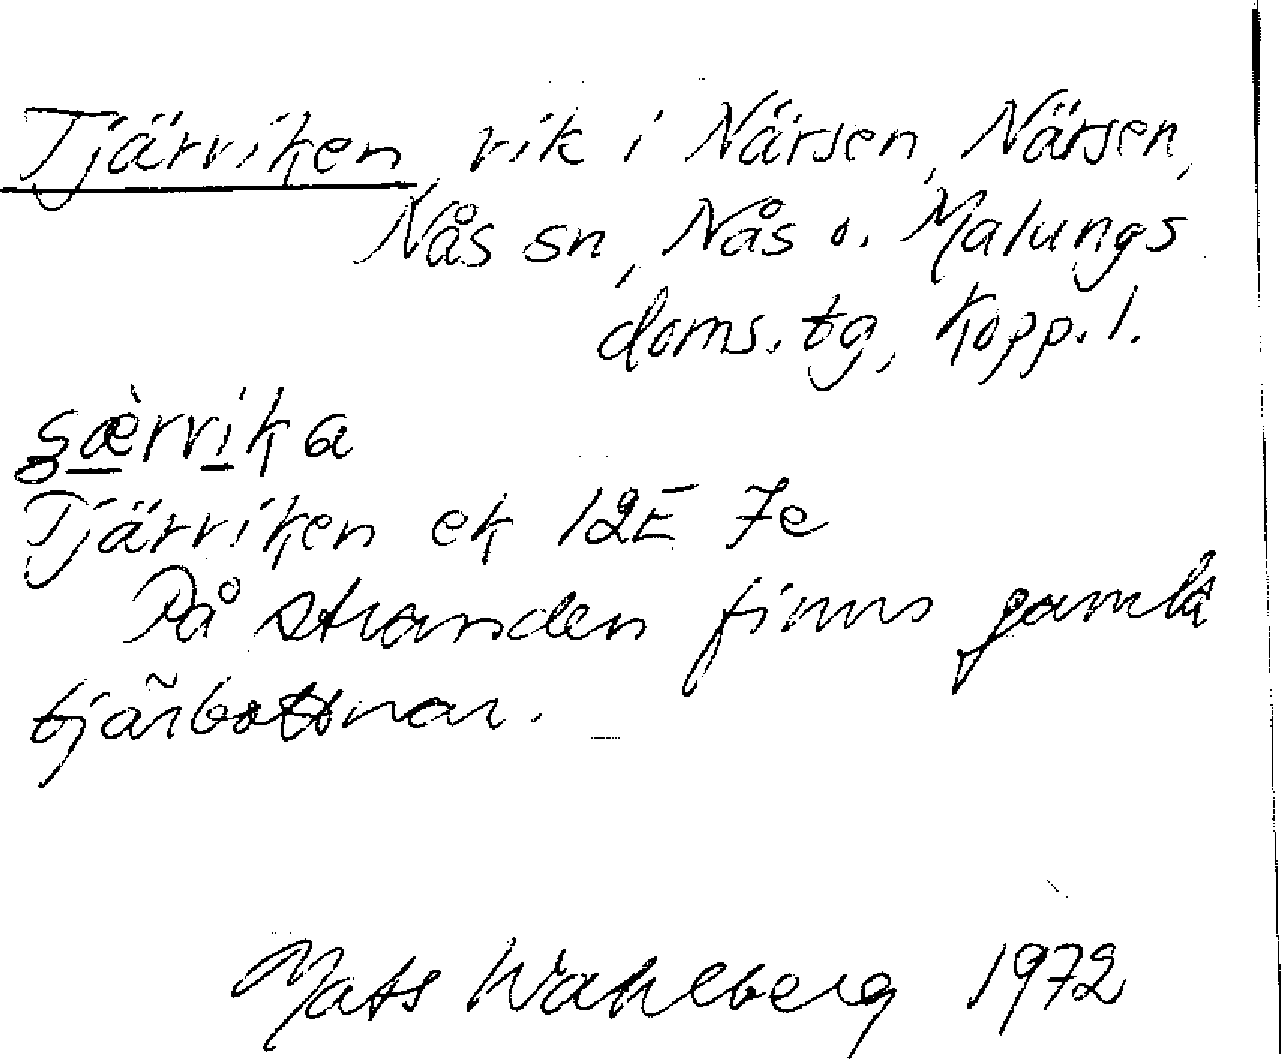 Tjärviken, vik i Närsen, Närsen,
Nås sn, Nås o. Malungs
doms. tg, Kopp. l.
s̱æ̱̀rvi̱ka
Tjärviken ek 12E 7e
På stranden finns gamla
tjärbottnar.
Mats Wahlberg 1972